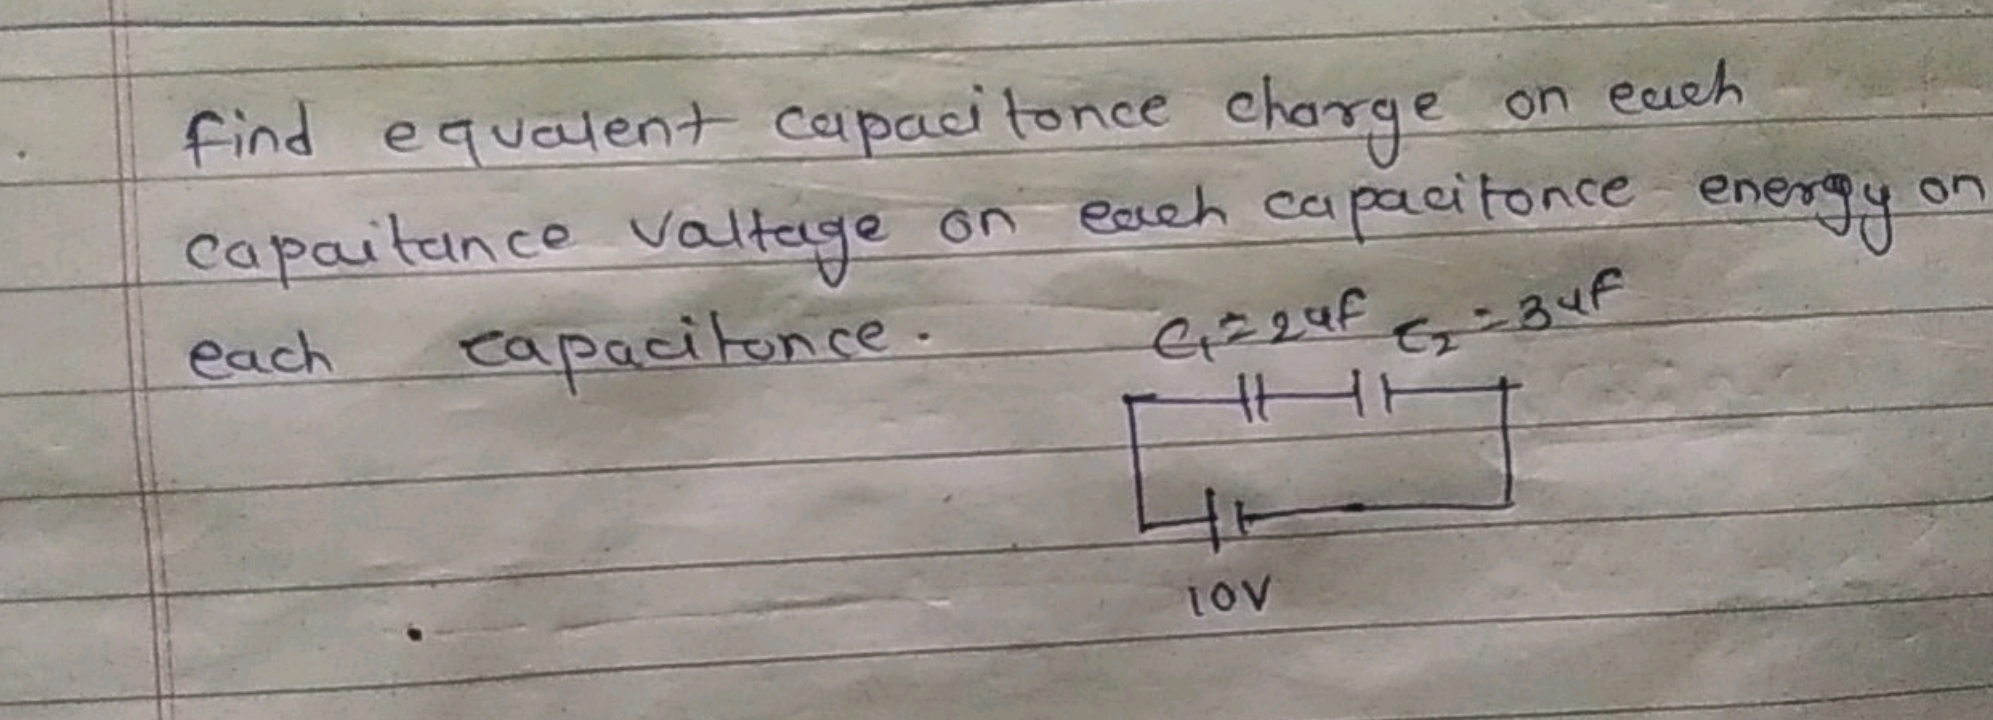 find equvalent capacitonce charge on each
capaitance valtage on each capacitonce energy on
each capacitonce.
C₁=2uF C₂=3uF
10V